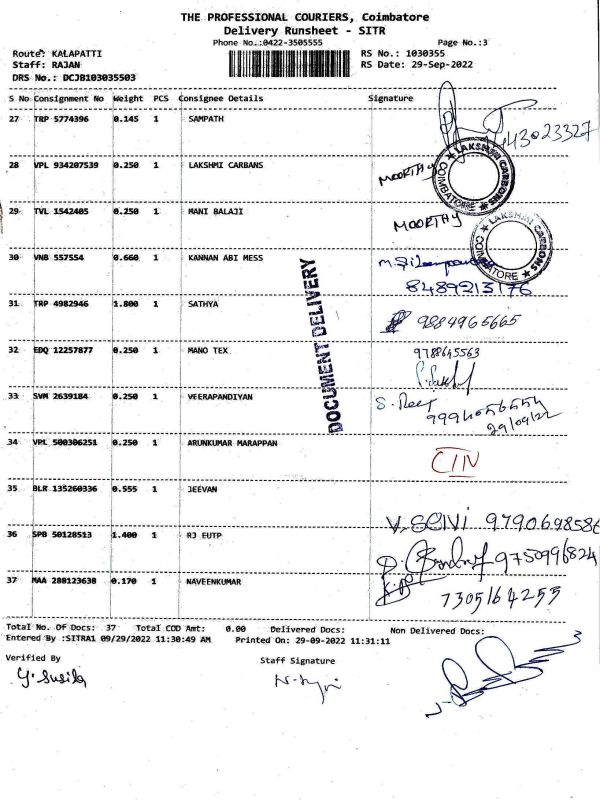 THE PROFESSIONAL COURIERS, Coimbatore
Delivery Runsheet - SITR
Phone No.:0422-3505555 Page No.:3
Route: KALAPATTI RS No.: 1030355
Staff: RAJAN RS Date: 29-Sep-2022
DRS No.: DCJB103035503
S No Consignment No Weight PCS Consignee Details Signature
27 TRP 5774396 0.145 1 SAMPATH
28 VPL 934207539 0.250 1 LAKSHMI CARBANS MOORTHY
LAKSHMI CARBONS COIMBATORE
29 TVL 1542405 0.250 1 MANI BALAJI MOORTHY
LAKSHMI CARBONS COIMBATORE
30 VNB 557554 0.660 1 KANNAN ABI MESS
8489213176
31 TRP 4982946 1.800 1 SATHYA 9884965665
DOCUMENT DELIVERY
32 EDQ 12257877 0.250 1 MANO TEX 9788645563
33 SVM 2639184 0.250 1 VEERAPANDIYAN
29/09/22
34 VPL 500306251 0.250 1 ARUNKUMAR MARAPPAN CIN
35 BLR 135260336 0.555 1 JEEVAN
V. SELVI 9790698586
36 SPB 50128513 1.400 1 RJ EUTP 9750996824
37 MAA 288123638 0.170 1 NAVEENKUMAR 7305164255
Total No. Of Docs: 37 Total COD Amt: 0.00 Delivered Docs: Non Delivered Docs:
Entered By :SITRA1 09/29/2022 11:30:49 AM Printed On: 29-09-2022 11:31:11
Verified By Staff Signature
Y. Susila